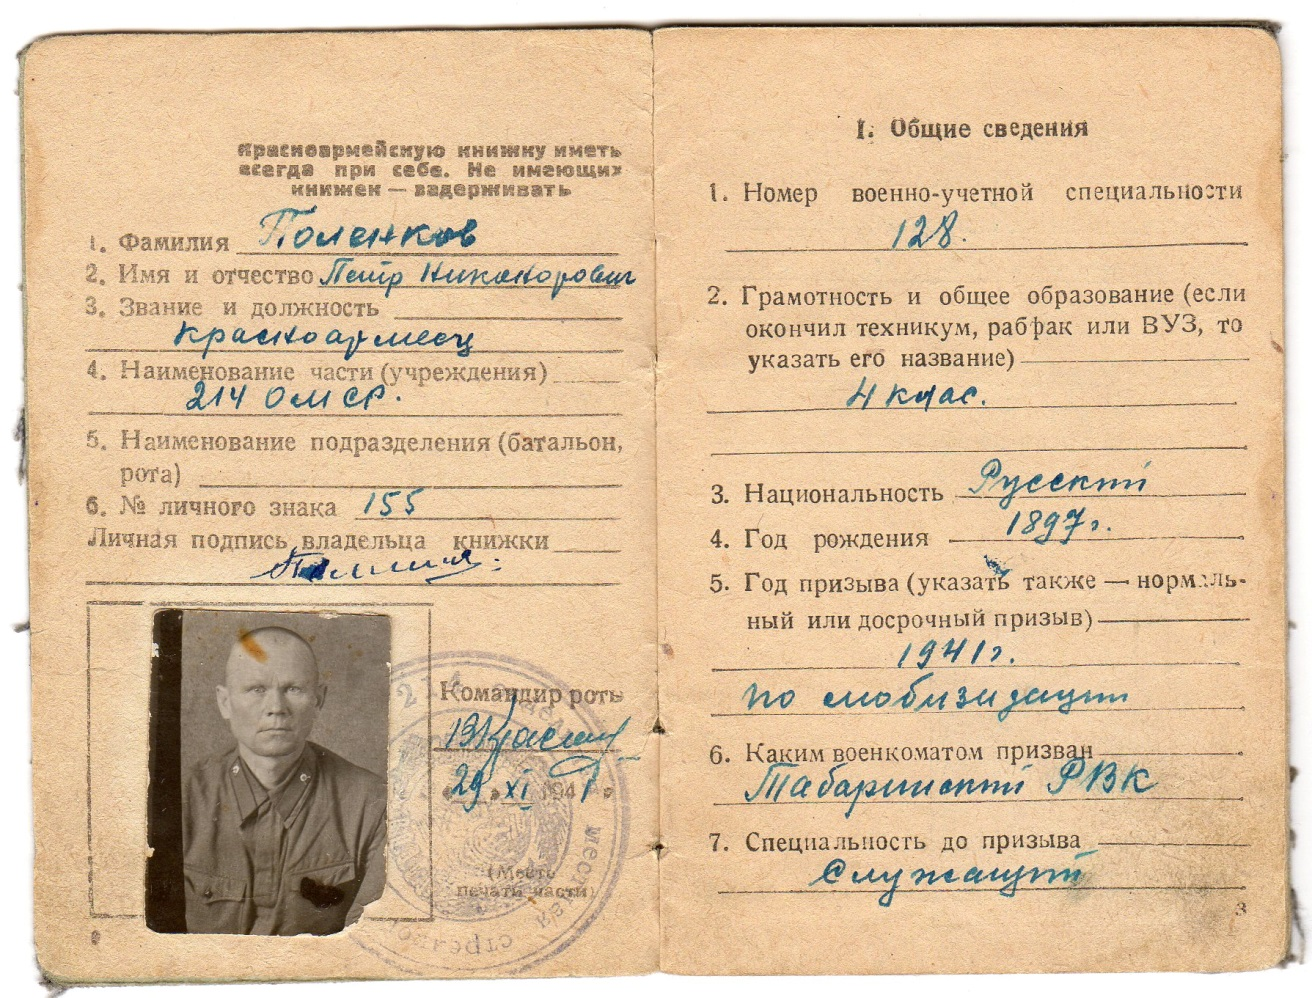 Красноармейскую книжку иметь
всегда при себе. Не имеющих
книжек — задерживать
1. Фамилия Поленков
2. Имя и отчество Петр Никанорович
3. Звание и должность
красноармеец
4. Наименование части (учреждения)
214 ОМСР.
5. Наименование подразделения (батальон,
рота)
6. № личного знака 155
Личная подпись владельца книжки
Командир роты
29 XI 1941
(Место
печати части)
214 местной стрелков
I. Общие сведения
1. Номер военно-учетной специальности
128.
2. Грамотность и общее образование (если
окончил техникум, рабфак или ВУЗ, то
указать его название)
4 клас.
3. Национальность Русский
4. Год рождения 1897 г.
5. Год призыва (указать также — нормаль-
ный или досрочный призыв)
1941 г.
по мобизизации
6. Каким военкоматом призван
Табаринский РВК
7. Специальность до призыва
Служащий
3